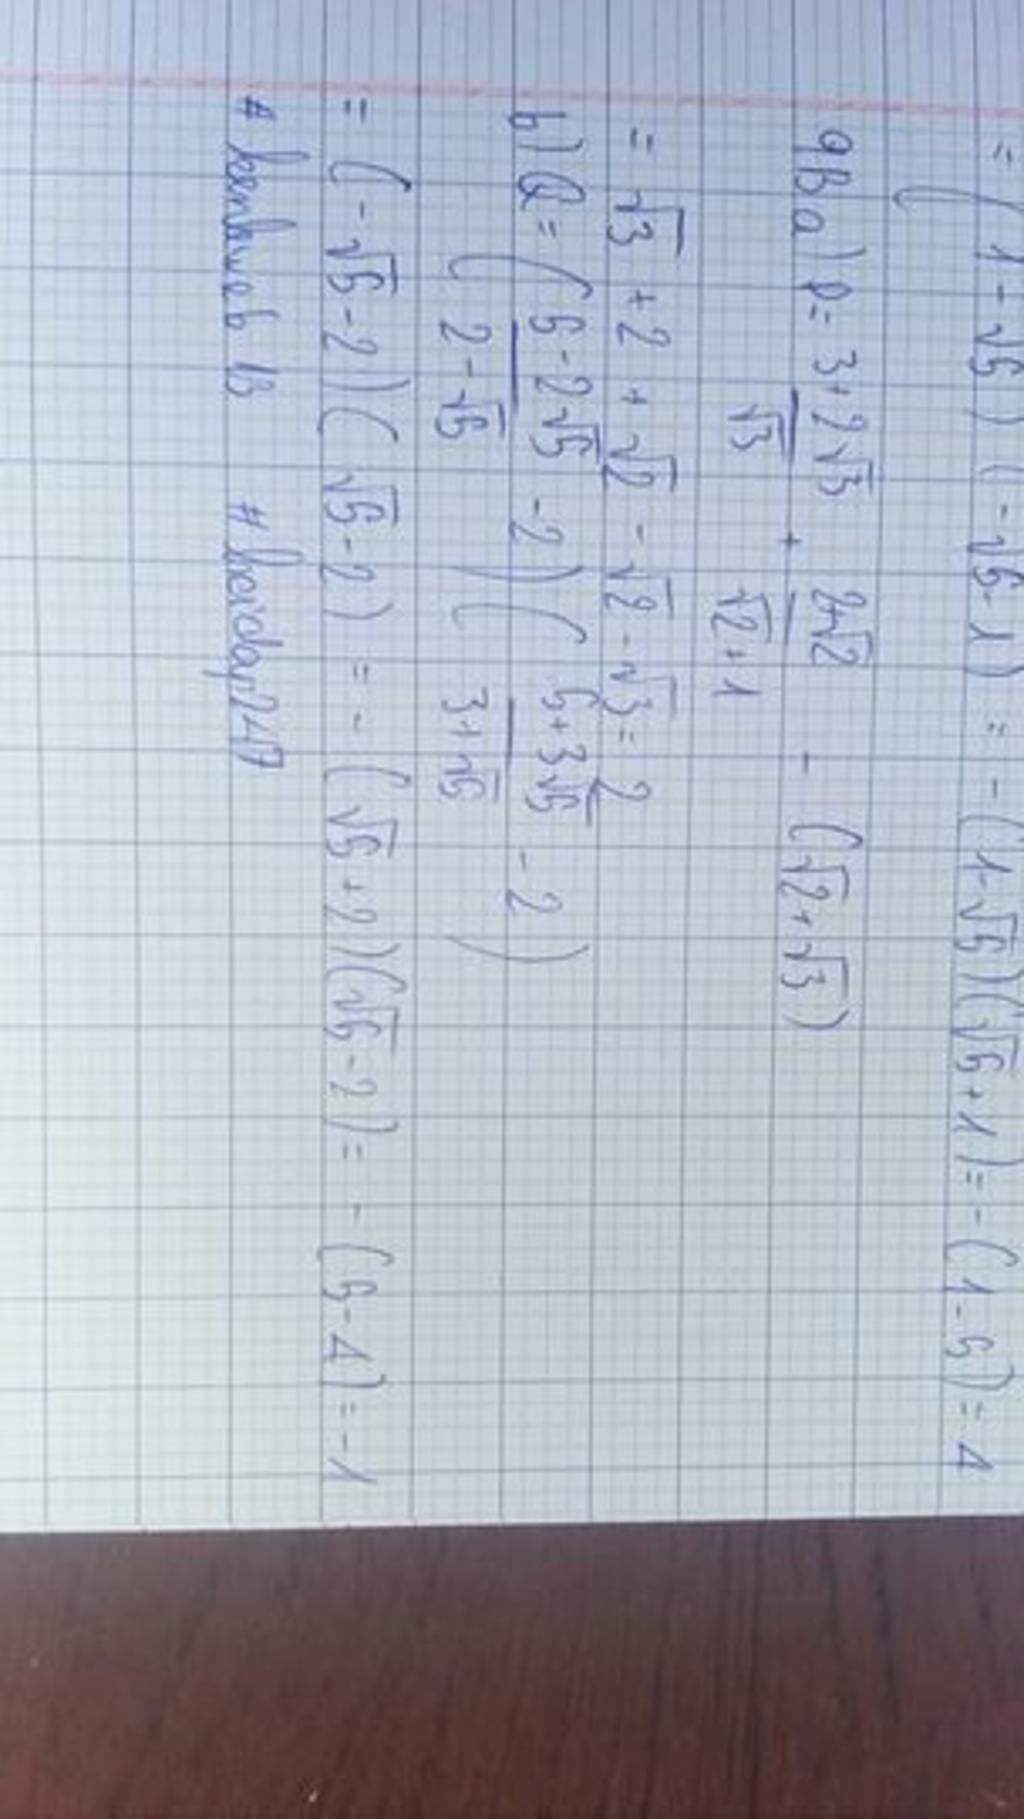 = (1-√5)(-√5-1) = -(1-√5)(√5+1) = -(1-5) = 4
9B a) P = (3+2√3)/√3 + (2+√2)/(√2+1) - (√2+√3)
= √3 + 2 + √2 - √2 - √3 = 2
b) Q = ((5-2√5)/(2-√5) - 2)((5+3√5)/(3+√5) - 2)
= (-√5-2)(√5-2) = -(√5+2)(√5-2) = -(5-4) = -1